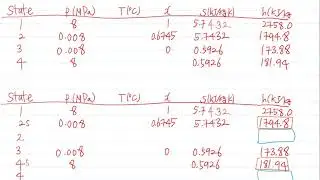 State P(MPa) T(°C) x s(kJ/kgK) h(kJ/kg)
1 8 1 5.7432 2758.0
2 0.008 0.6745 5.7432 1794.8
3 0.008 0 0.5926 173.88
4 8 0.5926 181.94
State P(MPa) T(°C) x s(kJ/kgK) h(kJ/kg)
1 8 1 5.7432 2758.0
2s 0.008 0.6745 5.7432 1794.8
2
3 0.008 0 0.5926 173.88
4s 8 0.5926 181.94
4